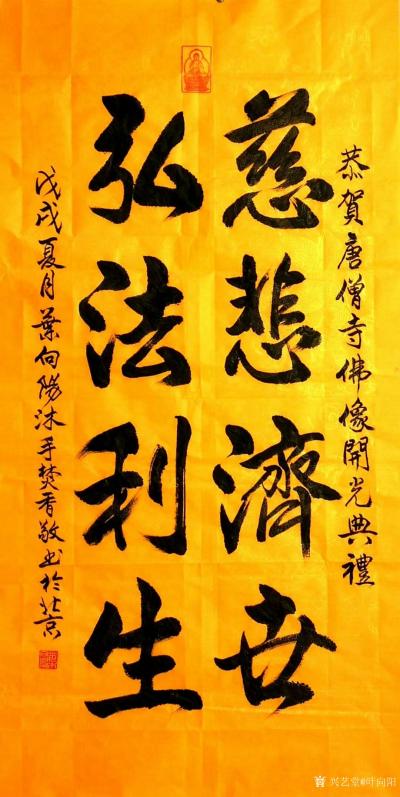 恭賀唐僧寺佛像開光典禮
慈悲濟世
弘法利生
戊戌夏月葉向陽沐手焚香敬书於北京
兴艺堂@叶向阳